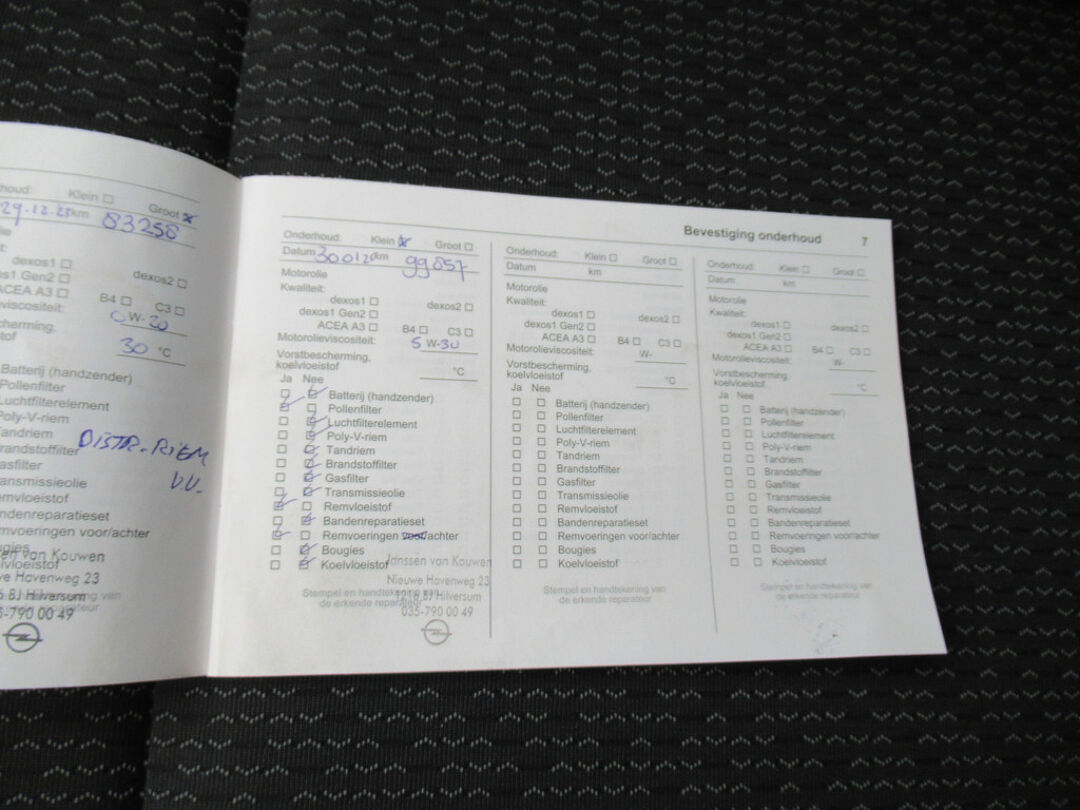 houd: Klein Groot
29-12-23 km 83258
dexos1 dexos2
s1 Gen2
ACEA A3 B4 C3
eviscositeit: 0 W-20
cherming,
tof 30 °C
Batterij (handzender)
Pollenfilter
Luchtfilterelement
Poly-V-riem
Tandriem DISTR.-RIEM
randstoffilter
Gasfilter V.V.
ansmissieolie
emvloeistof
ndenreparatieset
mvoeringen voor/achter
ougies
ssen van Kouwen
elvloeistof
we Havenweg 23
6 BJ Hilversum
5-790 00 49
Bevestiging onderhoud 7
Onderhoud: Klein Groot
Datum km 99857
Motorolie
Kwaliteit:
dexos1 dexos2
dexos1 Gen2
ACEA A3 B4 C3
Motorolieviscositeit: 5 W-30
Vorstbescherming,
koelvloeistof °C
Ja Nee
Batterij (handzender)
Pollenfilter
Luchtfilterelement
Poly-V-riem
Tandriem
Brandstoffilter
Gasfilter
Transmissieolie
Remvloeistof
Bandenreparatieset
Remvoeringen voor/achter
Bougies
Koelvloeistof
Janssen van Kouwen
Stempel en handtekening van
Nieuwe Havenweg 23
de erkende reparateur
1216 BJ Hilversum
035-790 00 49
Onderhoud: Klein Groot
Datum km
Motorolie
Kwaliteit:
dexos1 dexos2
dexos1 Gen2
ACEA A3 B4 C3
Motorolieviscositeit: W-
Vorstbescherming,
koelvloeistof °C
Ja Nee
Batterij (handzender)
Pollenfilter
Luchtfilterelement
Poly-V-riem
Tandriem
Brandstoffilter
Gasfilter
Transmissieolie
Remvloeistof
Bandenreparatieset
Remvoeringen voor/achter
Bougies
Koelvloeistof
Stempel en handtekening van
de erkende reparateur
Onderhoud: Klein Groot
Datum km
Motorolie
Kwaliteit:
dexos1 dexos2
dexos1 Gen2
ACEA A3 B4 C3
Motorolieviscositeit: W-
Vorstbescherming,
koelvloeistof °C
Ja Nee
Batterij (handzender)
Pollenfilter
Luchtfilterelement
Poly-V-riem
Tandriem
Brandstoffilter
Gasfilter
Transmissieolie
Remvloeistof
Bandenreparatieset
Remvoeringen voor/achter
Bougies
Koelvloeistof
Stempel en handtekening van
de erkende reparateur